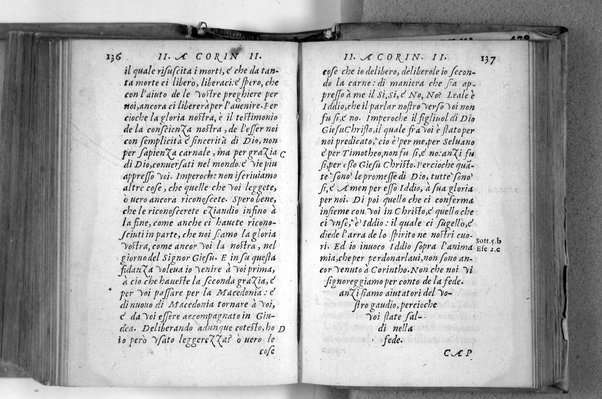 136 II. A CORIN II.
il quale risuscita i morti, é che da tan-
ta morte ci liberò, liberaci: é spero, che
con l'aiuto de le vostre preghiere per
noi, ancora ci libererà per l'auenire. Per
cioche la gloria nostra, è il testimonio
de la conscienza nostra, de l'esser noi
con semplicità é sincerità di Dio, non
per sapienza carnale, ma per grazia C
di Dio, conuersati nel mondo: é vie piu
appresso voi. Imperoche non iscriuiamo
altre cose, che quelle che voi leggete,
ò vero ancora riconoscete. Spero bene,
che le riconoscerete eziandio infino à
la fine, come anche ci hauete ricono-
sciuti in parte, che noi siamo la gloria
vostra, come ancor voi la nostra, nel
giorno del Signor Giesu. E in su questa
fidanza voleua io venire à voi prima,
à cio che haueste la seconda grazia, é
per voi passare per la Macedonia: é
di nuouo di Macedonia tornare à voi,
é da voi essere accompagnato in Giu-
dea. Deliberando adunque cotesto, ho D
io però vsato leggerezza? ò vero le
cose
II. A CORIN. II. 137
cose che io delibero, deliberole io secon-
do la carne: di maniera che sia ap-
presso à me il Si, si, é No, No? Leale è
Iddio, che il parlar nostro verso voi non
fu si, é no. Imperoche il figliuol di Dio
Giesu Christo, il quale fra voi è stato per
noi predicato, cio è per me, per Seluano
é per Timotheo, non fu si, é no: anzi fu
si, per esso Giesu Christo. Percioche quā-
te sono le promesse di Dio, tutte sono
si, é Amen per esso Iddio, à sua gloria
per noi. Di poi quello che ci conferma
insieme con voi in Christo, é quello che
ci vnse, è Iddio: il quale ci sugellò, é
diede l'arra de lo spirito ne nostri cuo-
ri. Ed io inuoco Iddio sopra l'anima Sott. 5. b
mia, che per perdonarlaui, non sono an- Efe 2. c
cor venuto à Corintho. Non che noi vi
signoreggiamo per conto de la fede.
anzi siamo aiutatori del vo-
stro gaudio, percioche
voi state sal-
di nella
fede.
CAP.